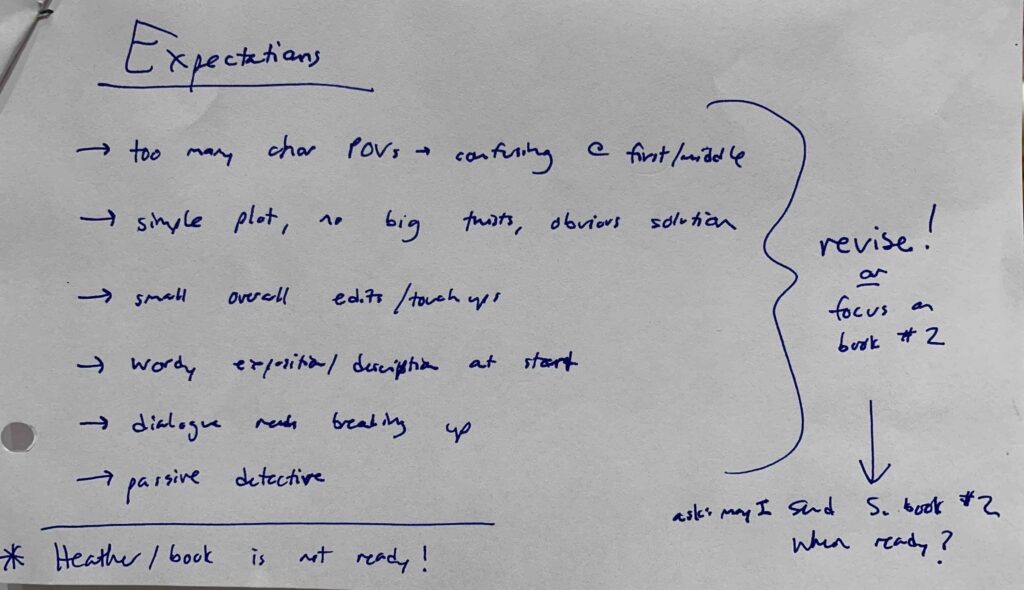 Expectations
→ too many char POVs → confusing @ first/middle
→ simple plot, no big twists, obvious solution
→ small overall edits/touch ups
→ wordy exposition/description at start
→ dialogue needs breaking up
→ passive detective
* Heather/book is not ready!
revise!
or
focus on
book #2
ask: may I send S. book #2
when ready?